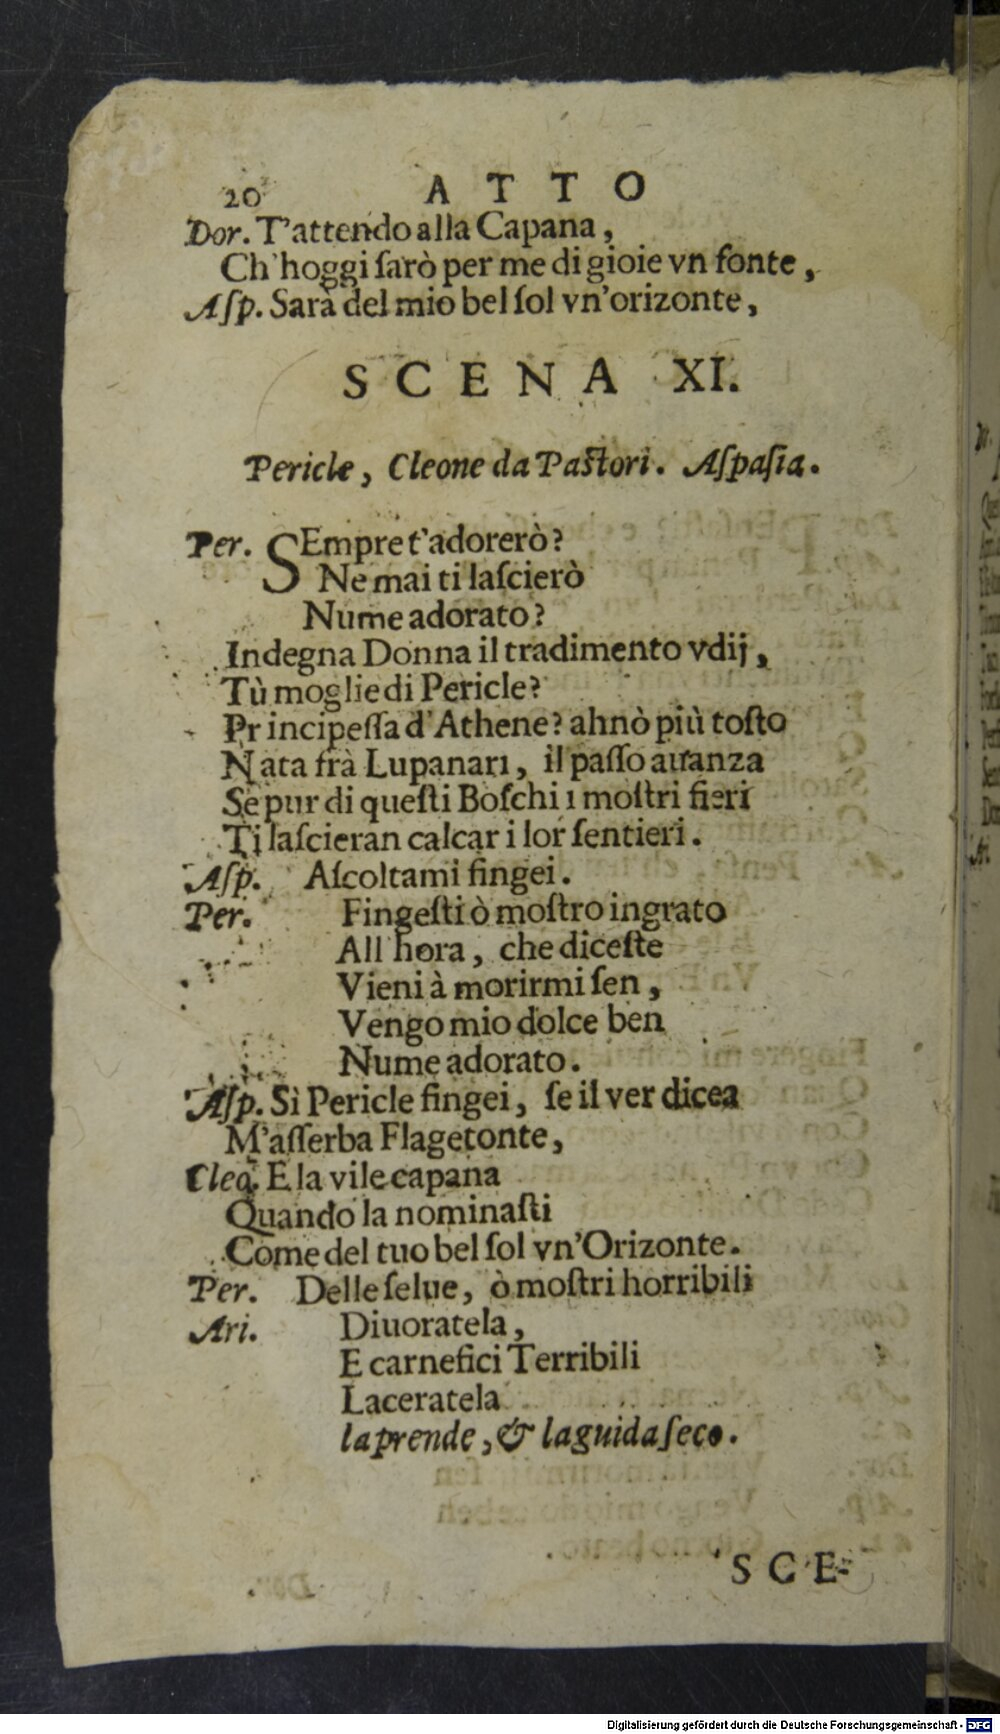 20 ATTO
Dor. T'attendo alla Capana,
Ch'hoggi ſarò per me di gioie vn fonte,
Aſp. Sarà del mio bel ſol vn'orizonte,
SCENA XI.
Pericle, Cleone da Paſtori. Aſpaſia.
Per. SEmpre t'adorerò?
Ne mai ti laſcierò
Nume adorato?
Indegna Donna il tradimento vdij,
Tù moglie di Pericle?
Principeſſa d'Athene? ah nò più toſto
Nata frà Lupanari, il paſſo auanza
Se pur di queſti Boſchi i moſtri fieri
Ti laſcieran calcar i lor ſentieri.
Aſp. Aſcoltami fingei.
Per. Fingeſti ò moſtro ingrato
All'hora, che diceſte
Vieni à morirmi ſen,
Vengo mio dolce ben
Nume adorato.
Aſp. Sì Pericle fingei, ſe il ver dicea
M'aſſerba Flagetonte,
Cleo. E la vile capana
Quando la nominaſti
Come del tuo bel ſol vn'Orizonte.
Per. Delle ſelue, ò moſtri horribili
Ari. Diuoratela,
E carnefici Terribili
Laceratela
la prende, & la guida ſeco.
SCE-
Digitalisierung gefördert durch die Deutsche Forschungsgemeinschaft - DFG